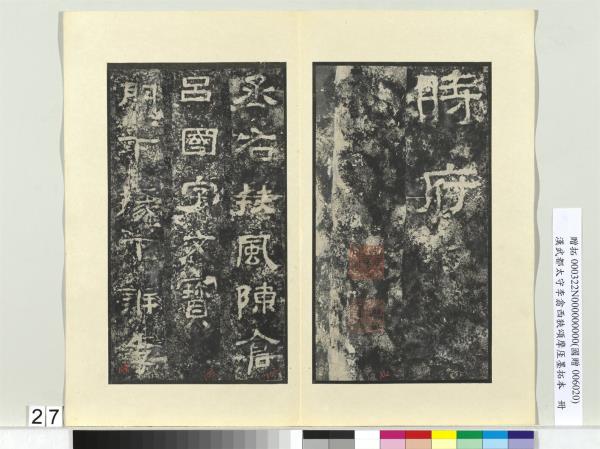 時府
丞右扶風陳倉
呂國字文寶
門下掾下辨李
贈拓 000322N000000000(國贈 006020)
漢武都太守李翕西狹頌摩厓墨拓本 冊
27